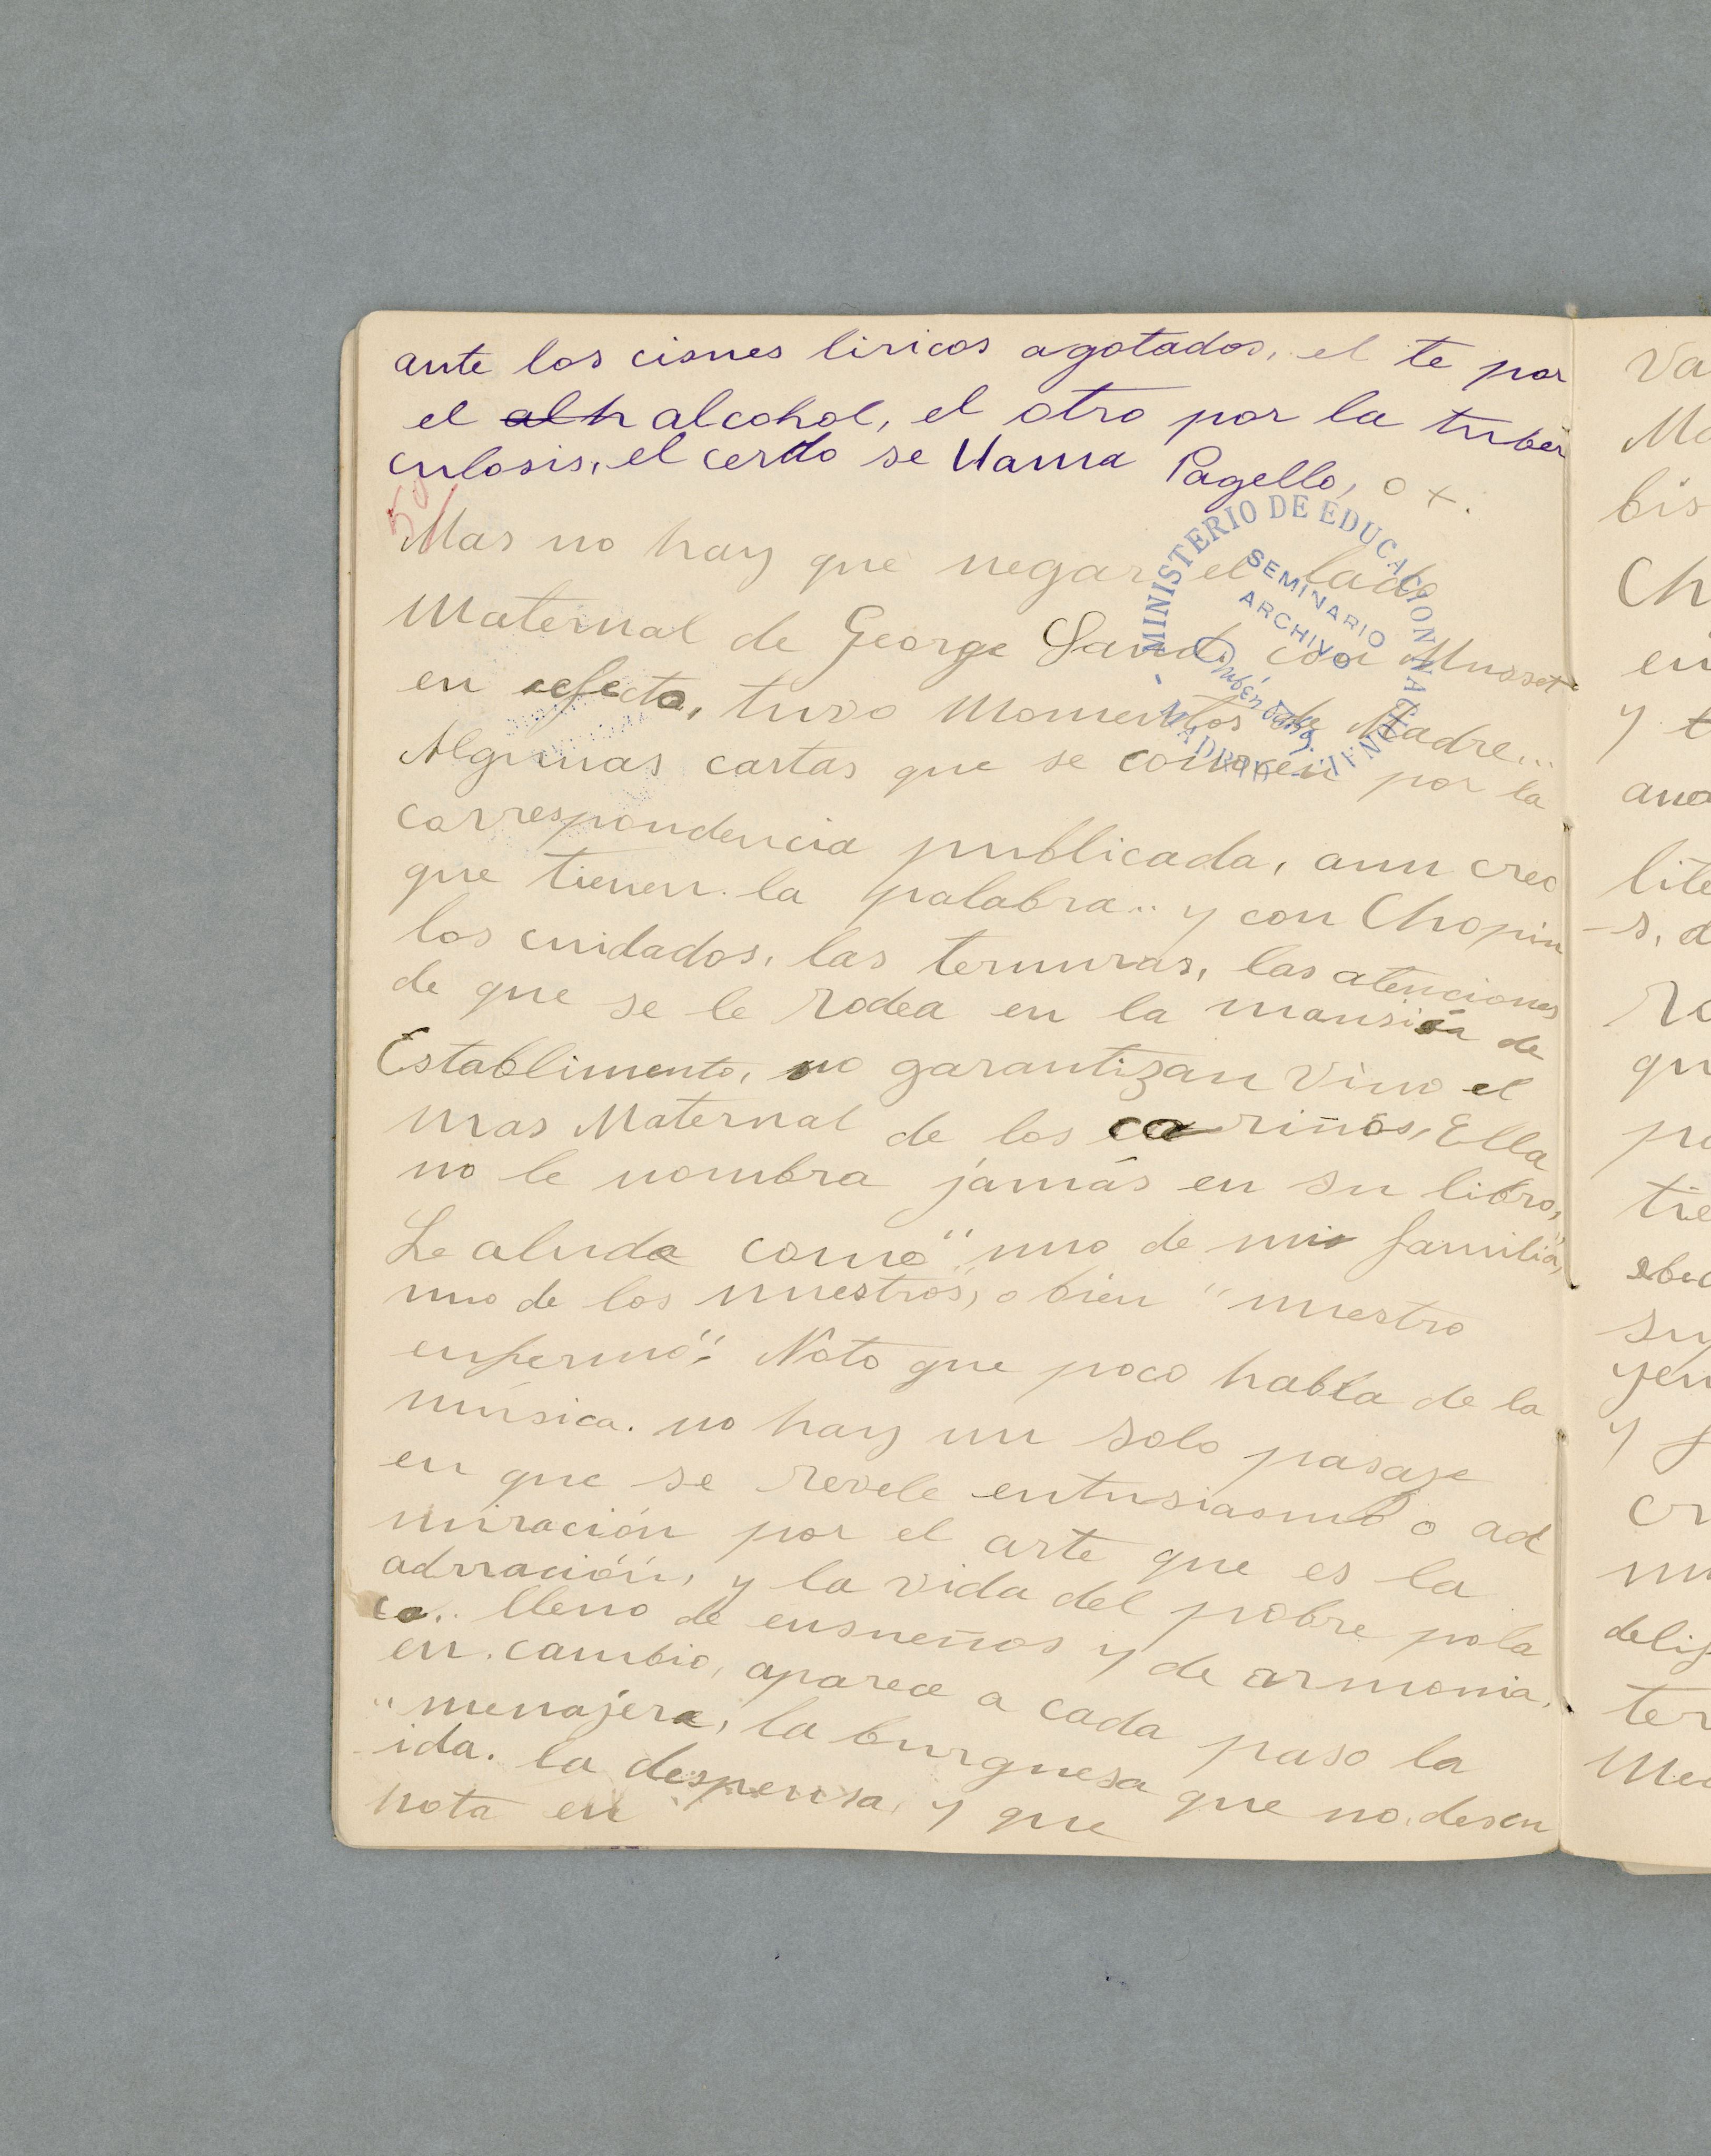 ante los cisnes liricos agotados, el te por
el alh alcohol, el otro por la tuber
culosis, el cerdo se llama Pagello, o x.
50
Mas no hay que negar el lado
Maternal de George Sand. con Musset
en efecto, tuvo Momentos de Madre...
Algunas cartas que se conocen por la
correspondencia publicada, aun creo
que tienen la palabra.. y con Chopin
los cuidados, las ternuras, las atenciones
de que se le rodea en la mansión de
Establimento, no garantizan sino el
mas Maternal de los cariños, Ella
no le nombra jamás en su libro,
Le alude como "uno de mi familia",
uno de los nuestros, o bien "nuestro
enfermo". Noto que poco habla de la
música. no hay un solo pasaje
en que se revele entusiasmo o ad
miración por el arte que es la
adrración, y la vida del pobre pola
co.. lleno de ensueños y de armonia.
en cambio, aparece a cada paso la
"menajera, la burguesa que no descu
ida. la despensa, y que
nota en
MINISTERIO DE EDUCACION NACIONAL
- MADRID -
SEMINARIO
ARCHIVO
Rubén Darío
Va
Ma
bis
Ch
en
y
ana
lite
s, d
Ro
qu
po
tie
su
yen
y
cr
mu
delig
ter
Med